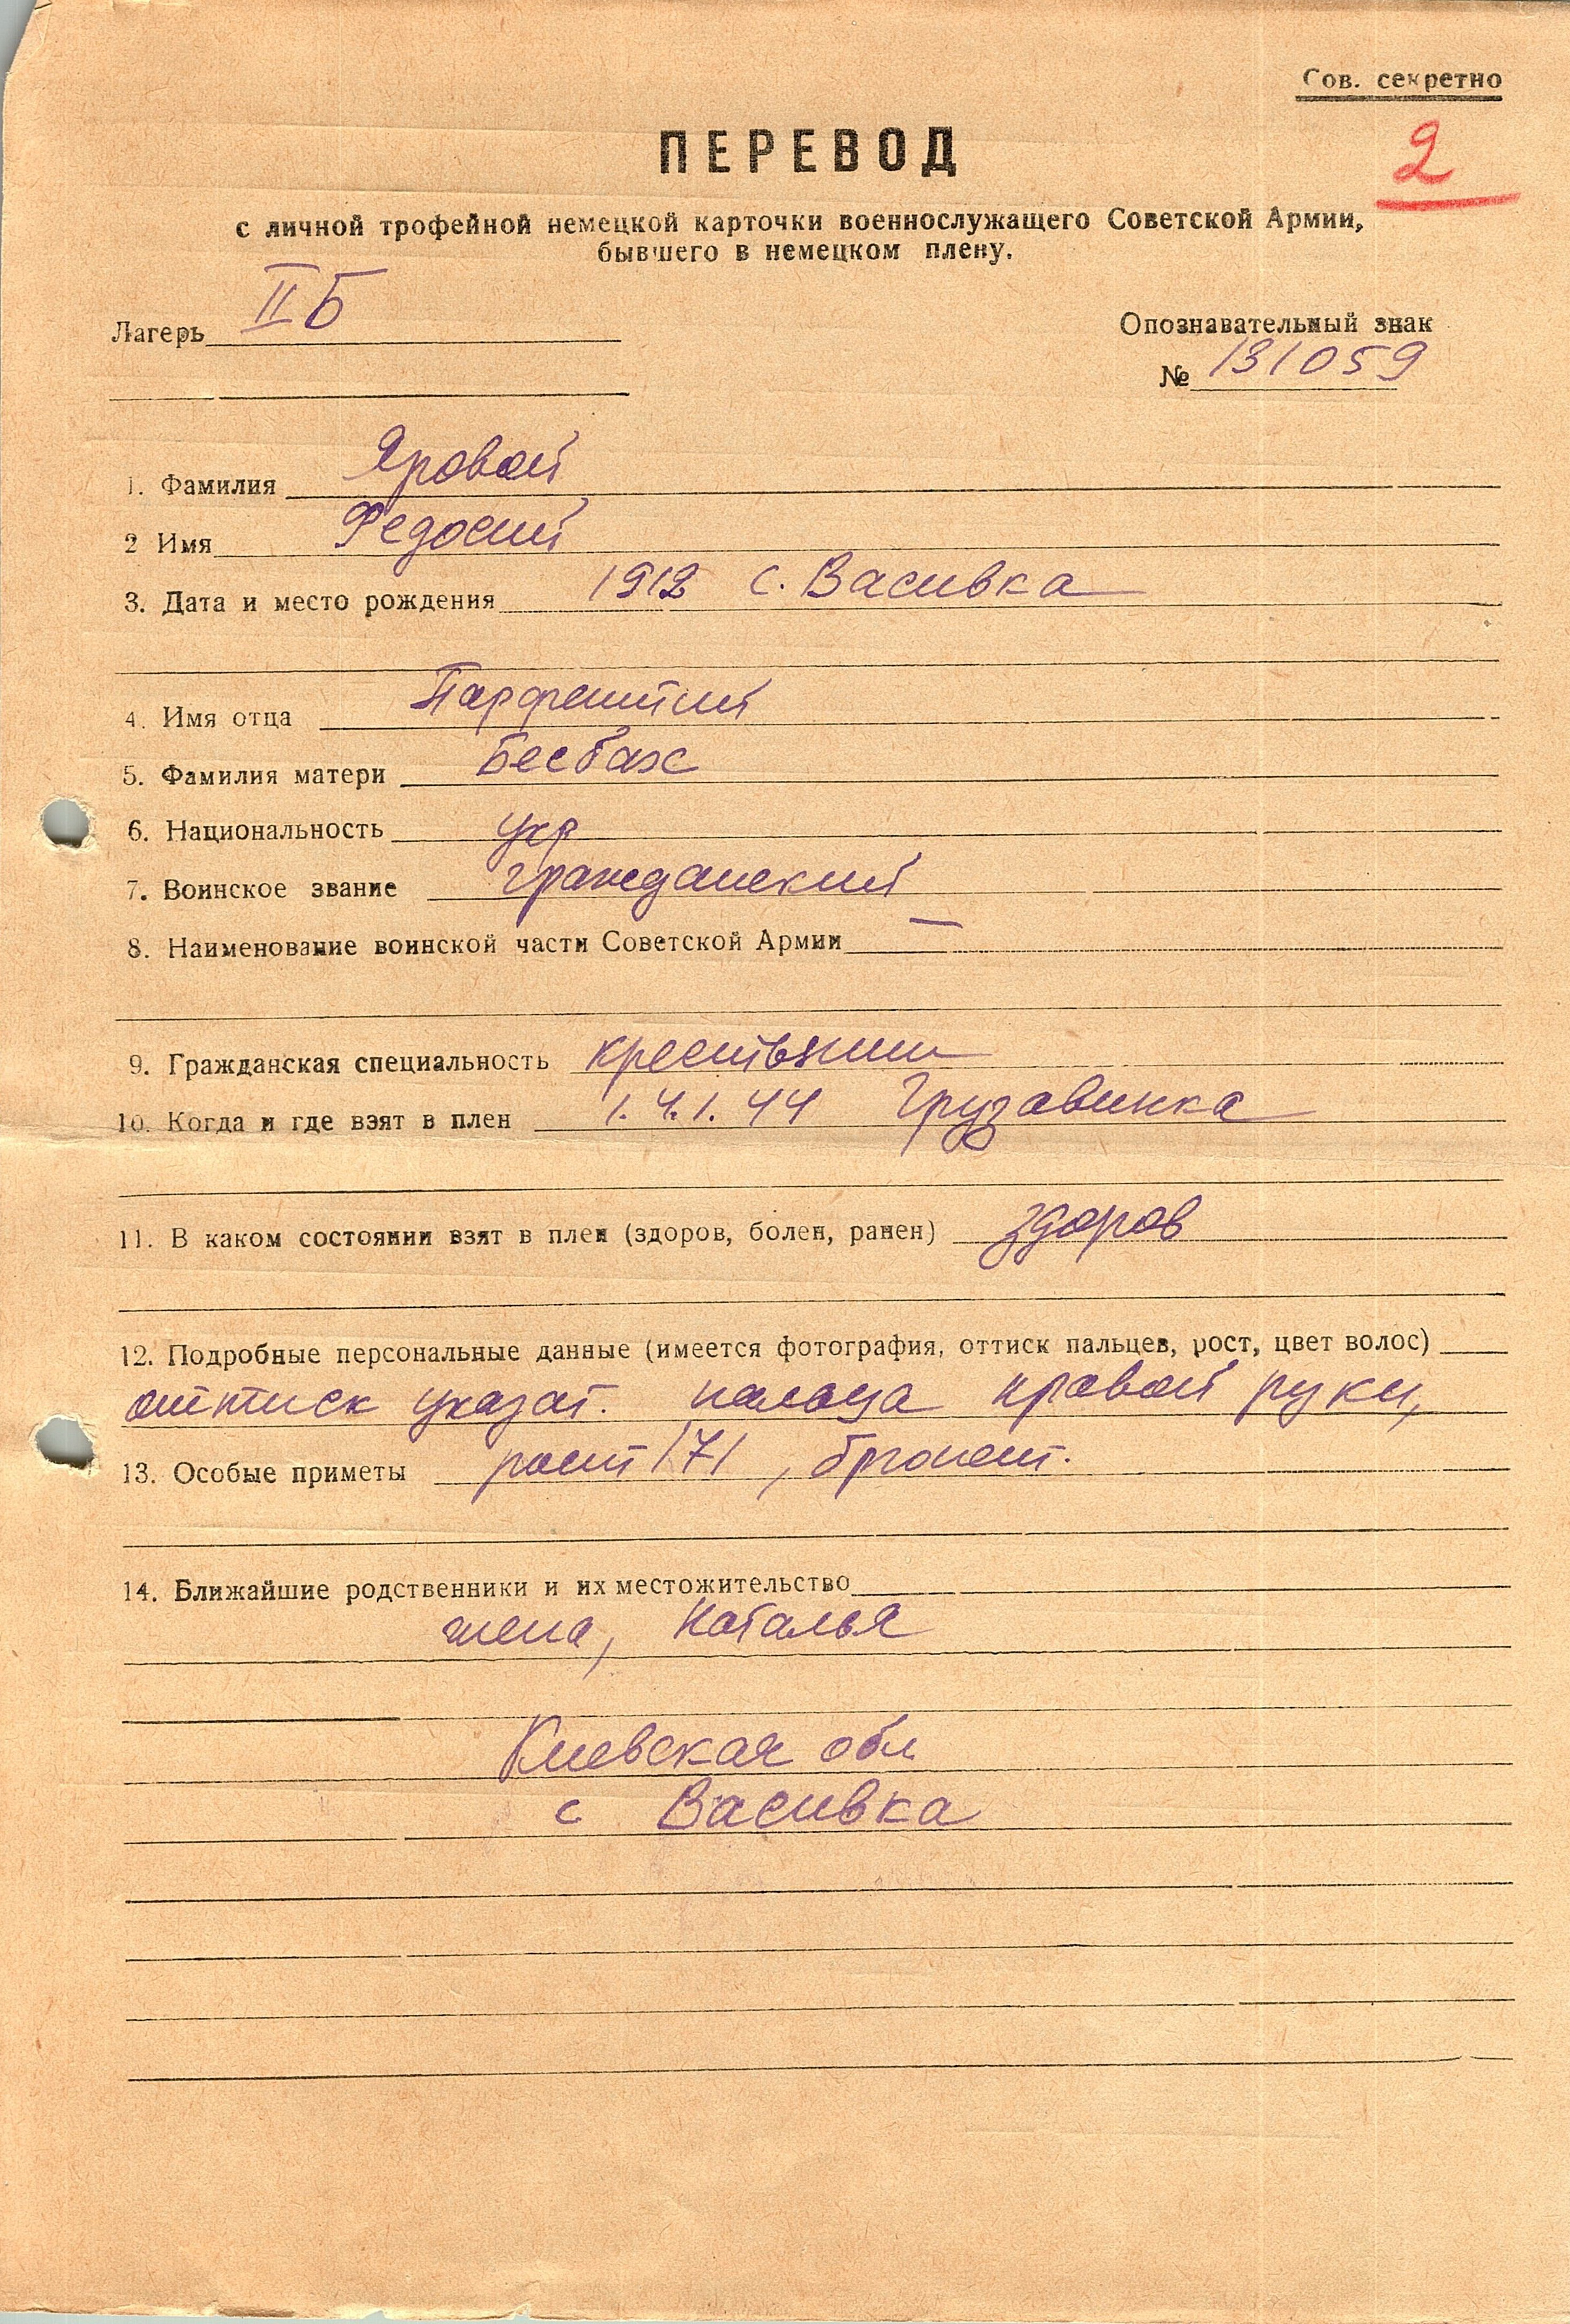 Сов. секретно
2
ПЕРЕВОД
с личной трофейной немецкой карточки военнослужащего Советской Армии,
бывшего в немецком плену.
Лагерь IIБ
Опознавательный знак
№ 131059
1. Фамилия Яровой
2 Имя Федосий
3. Дата и место рождения 1912 с. Васивка
4. Имя отца
5. Фамилия матери Бесбах
6. Национальность укр
7. Воинское звание гражданский
8. Наименование воинской части Советской Армии —
9. Гражданская специальность крестьянин
10. Когда и где взят в плен Грузавинка
11. В каком состоянии взят в плен (здоров, болен, ранен) здоров
12. Подробные персональные данные (имеется фотография, оттиск пальцев, рост, цвет волос)
оттиск указат. пальца правой руки,
13. Особые приметы рост 171, брюнет.
14. Ближайшие родственники и их местожительство
жена, Наталья
Киевская обл
с Васивка